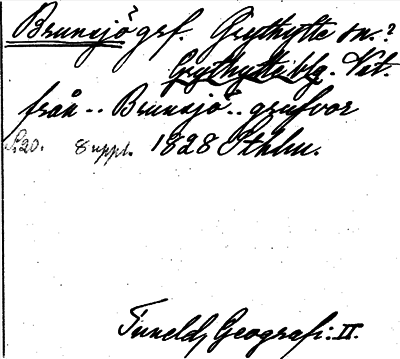 Brunsjö? grf. Grythytte sn.?
Grythytte blg. Vst.
från .. Brunsjö .. grufvor
S. 20. 8 uppl. 1828 Sthlm.
Tunelds Geografi. II.